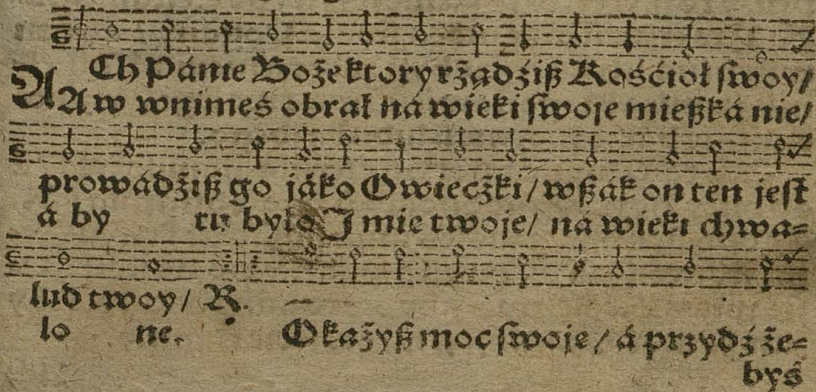 ACh Pánie Boże ktory rżądźiß Kośćioł swoy/
A w wnimeś obrał ná wieki swoje mießká nie/
prowádźiß go jáko Owieczki/ wßák on ten jest
á by tu było Imie twoje/ ná wieki chwa=
lud twoy/ R.
lo ne. Okażyß moc swoje/ á przydź że=
byś